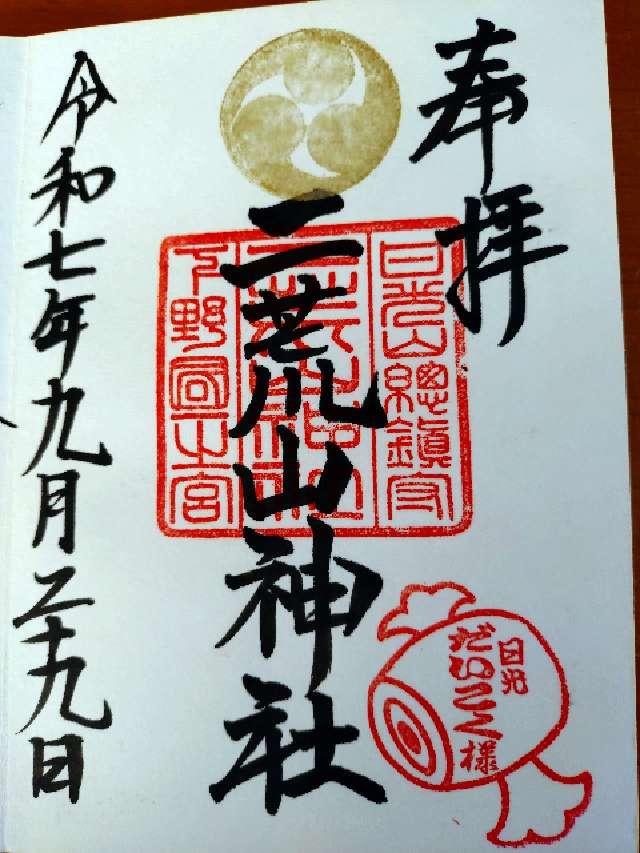 奉拝
日光山總鎮守
二荒山神社
下野國一之宮
二荒山神社
令和七年九月二十九日
日光
だいこく様